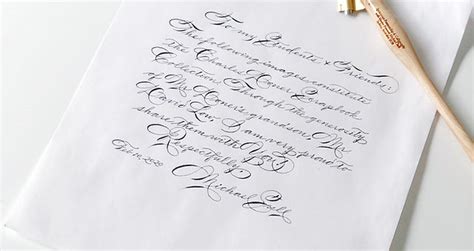 To my Students & Friends:
The following images constitute
the Charles Honer Scrapbook
Collection. Through the generosity
of Mr. Honer's grandson, Mr.
Law. I am very proud to
share them with YOU.
Respectfully
Feb.
Michael Sull